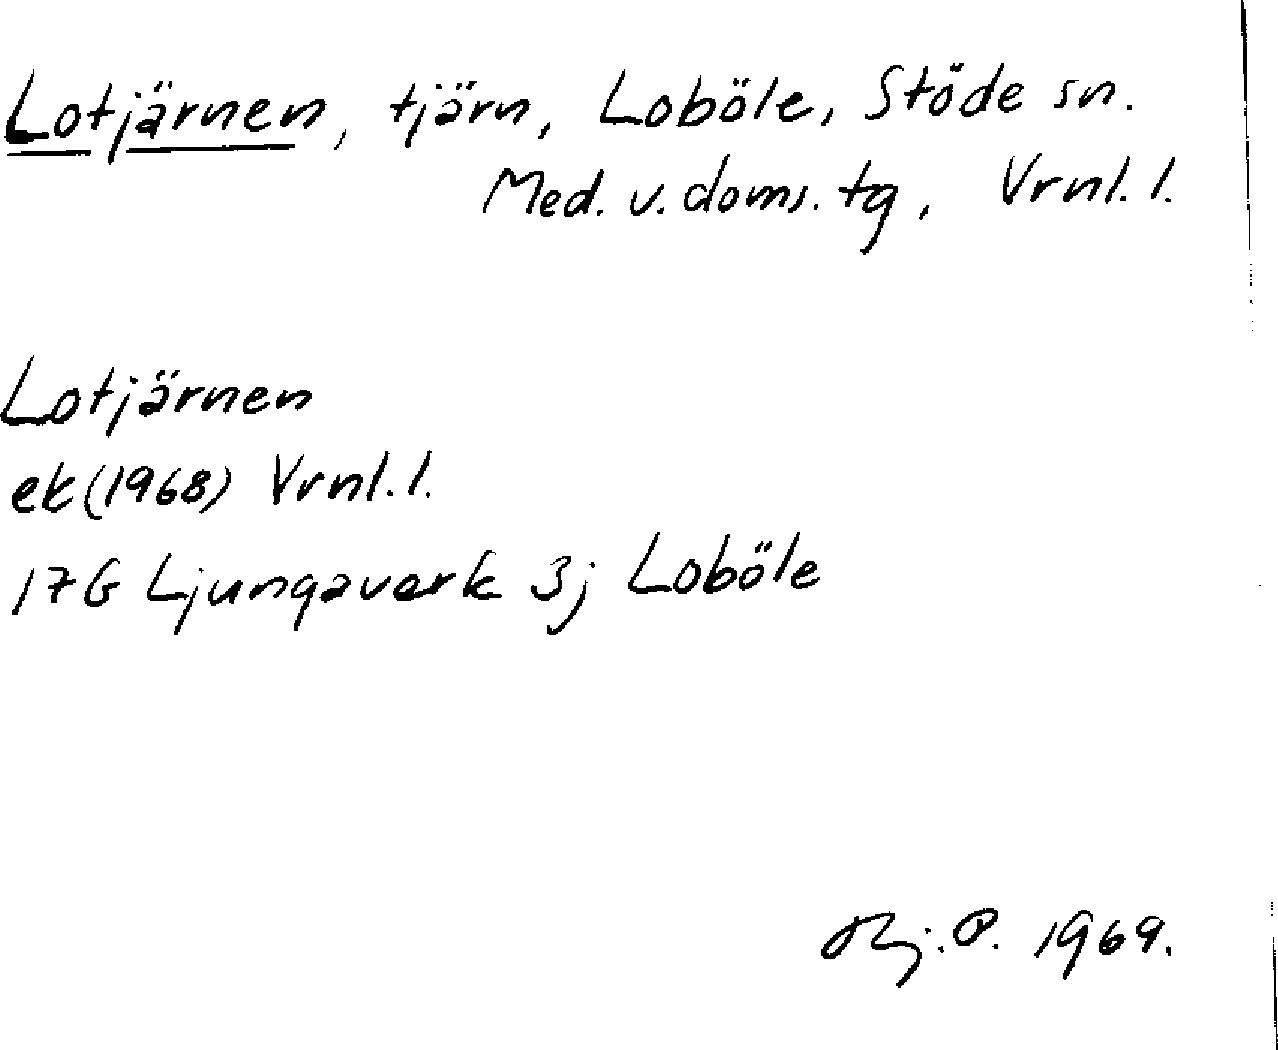 Lotjärnen, tjärn, Loböle, Stöde sn.
Med. v. doms. tg, Vrnl. l.
Lotjärnen
ek (1968) Vrnl. l.
17G Ljungaverk 3j Loböle
1969.